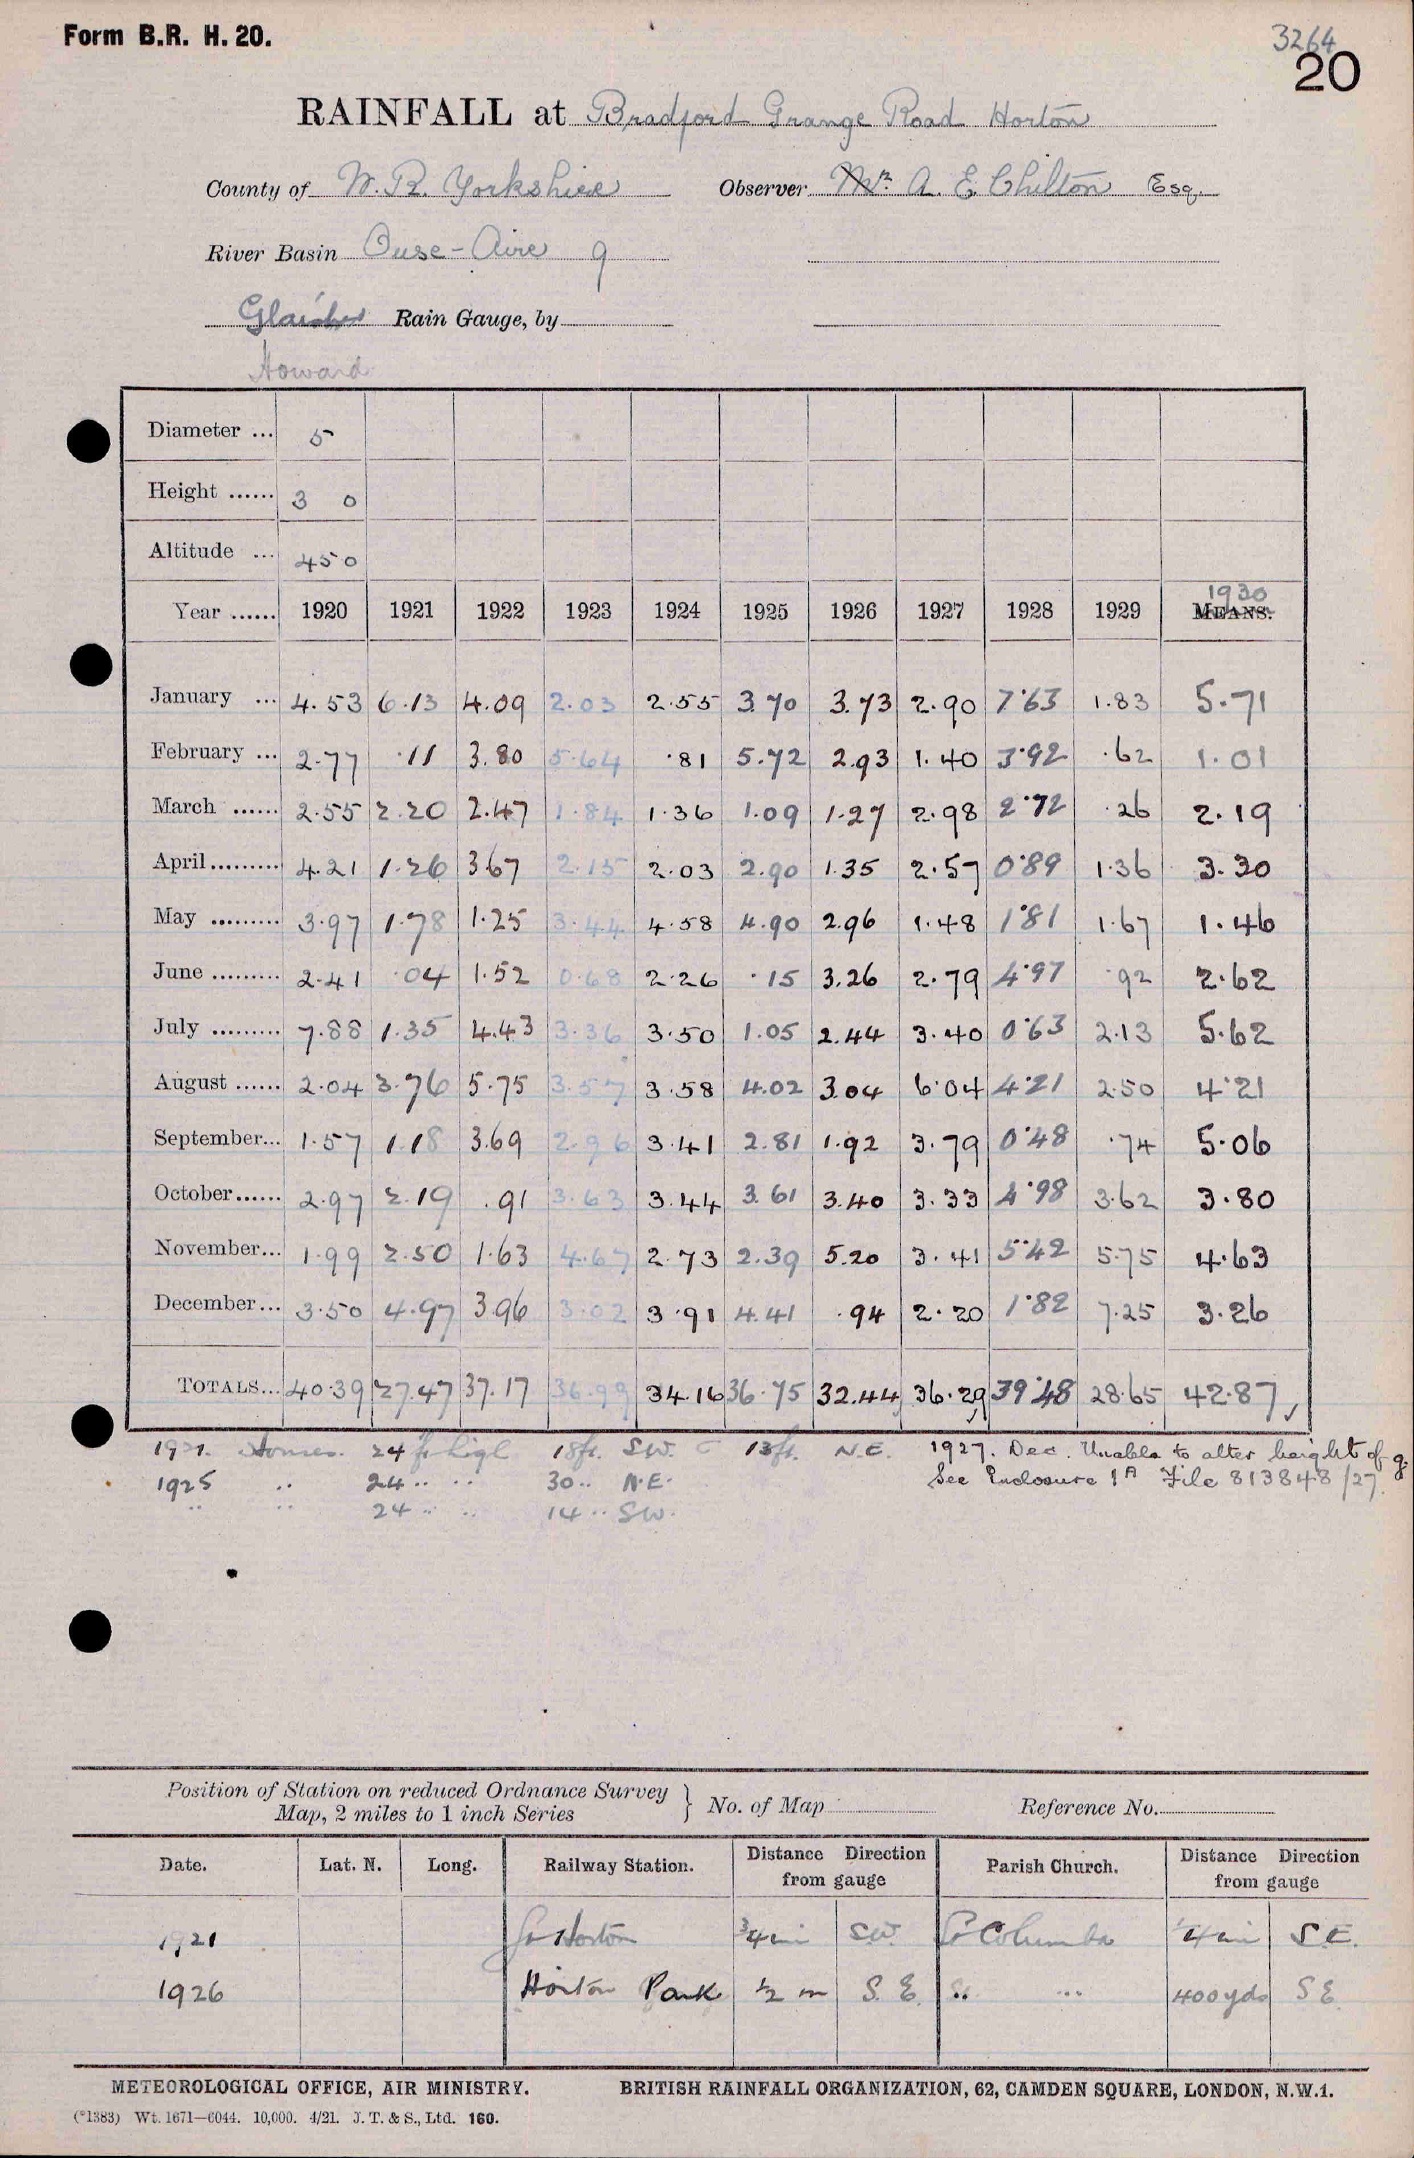 Form B.R. H. 20.
3264
20
RAINFALL at Bradford Grange Road Horton
County of W. R. Yorkshire Observer Mr. A. E. Chilton Esq.
River Basin Ouse-Aire 9
Glaisher Rain Gauge, by
Howard
Diameter ... 5
Height ...... 3 0
Altitude ... 450
1930
Year ...... 1920 1921 1922 1923 1924 1925 1926 1927 1928 1929 MEANS.
January ... 4.53 6.13 4.09 2.03 2.55 3.70 3.73 2.90 7.63 1.83 5.71
February ... 2.77 .11 3.80 5.64 .81 5.72 2.93 1.40 3.92 .62 1.01
March ...... 2.55 2.20 2.47 1.84 1.36 1.09 1.27 2.98 2.72 .26 2.19
April ......... 4.21 1.26 3.67 2.15 2.03 2.90 1.35 2.57 0.89 1.36 3.30
May ......... 3.97 1.78 1.25 3.44 4.58 4.90 2.96 1.48 1.81 1.67 1.46
June ......... 2.41 .04 1.52 0.68 2.26 .15 3.26 2.79 4.97 .92 2.62
July ......... 7.88 1.35 4.43 3.36 3.50 1.05 2.44 3.40 0.63 2.13 5.62
August ...... 2.04 3.76 5.75 3.57 3.58 4.02 3.04 6.04 4.21 2.50 4.21
September... 1.57 1.18 3.69 2.96 3.41 2.81 1.92 3.79 0.48 .74 5.06
October...... 2.97 2.19 .91 3.63 3.44 3.61 3.40 3.33 4.98 3.62 3.80
November... 1.99 2.50 1.63 4.67 2.73 2.39 5.20 3.41 5.42 5.75 4.63
December... 3.50 4.97 3.96 3.02 3.91 4.41 .94 2.20 1.82 7.25 3.26
TOTALS... 40.39 27.47 37.17 36.99 34.16 36.75 32.44 36.29 39.48 28.65 42.87
1921. Houses. 24 ft high 18ft. S.W. 13ft. N.E. 1927. Dec. Unable to alter height of g.
1925 .. 24 .. .. 30 .. N.E. See Enclosure 1A File 813848/27.
.. .. 24 .. .. 14 .. SW.
Position of Station on reduced Ordnance Survey
Map, 2 miles to 1 inch Series } No. of Map Reference No.
Date. Lat. N. Long. Railway Station. Distance Direction from gauge Parish Church. Distance Direction from gauge
1921 Gt Horton 3/4 mi S.W. St Columba 1/4 mi S.E.
1926 Horton Park 1/2 m S.E. .. ... 400 yds S E
METEOROLOGICAL OFFICE, AIR MINISTRY. BRITISH RAINFALL ORGANIZATION, 62, CAMDEN SQUARE, LONDON, N.W.1.
(*1383) Wt. 1671—6044. 10,000. 4/21. J. T. & S., Ltd. 160.